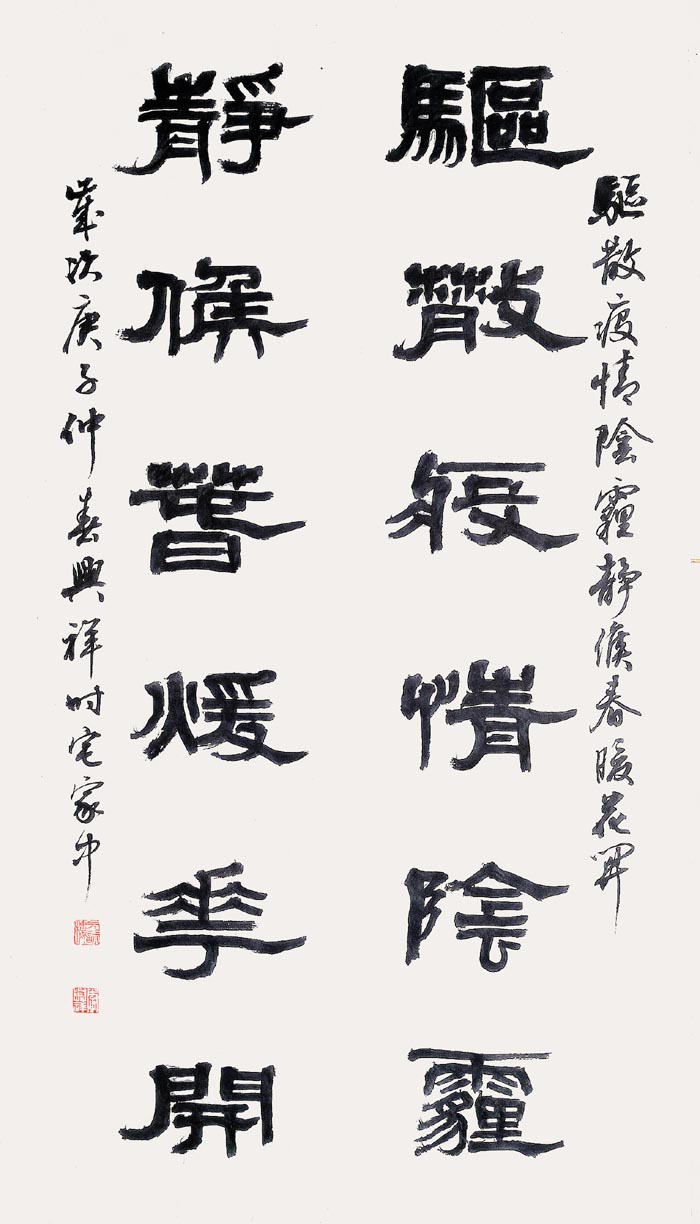 驅散疫情陰霾静候春暖花開
驅散疫情陰霾
靜候春煖華開
歲次庚子仲春興祥时宅家中